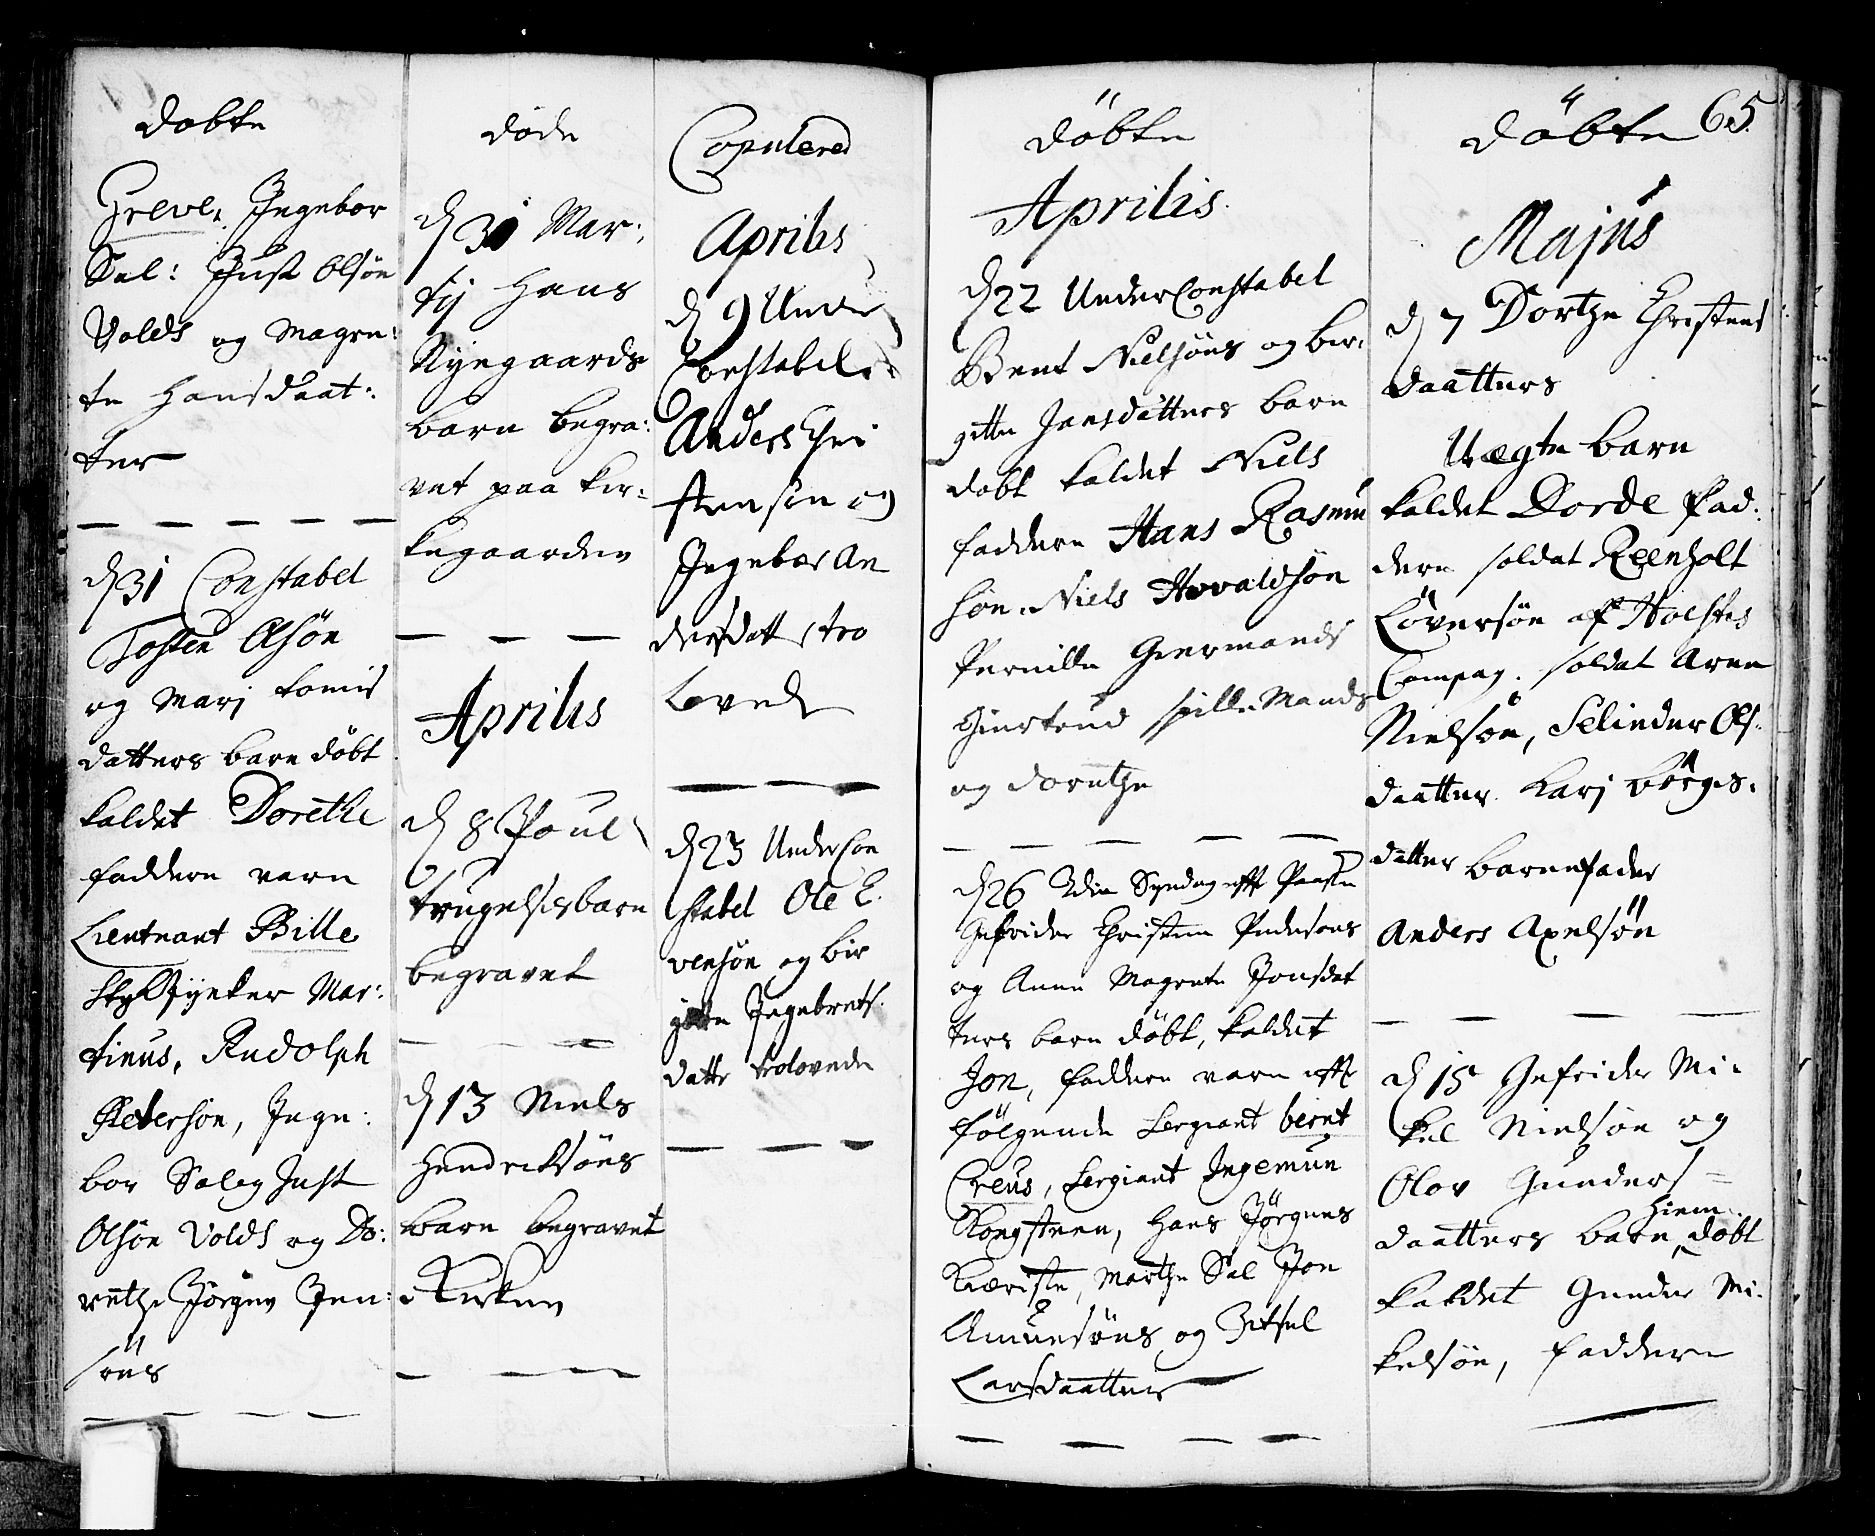 Døbte
Greve, Ingebor
Sal: Just Olsøn
Volds og Magre:
te Hansdaat:
ter
d 31 Constabel
Tosten Olsøn
og Marj Tomis
datters barn döbt
kaldet Dorethe
faddere varn
Lieutnant Bille
Mar:
tinus, Rudolph
Peterson, Inge:
bor Salig Just
Olsøn Volds og Do:
rethe Jörgen Jen:
söns
døde
d 31 Mar:
tij Hans
Nyegaards
barn begra:
vet paa kir:
kegaarden
Aprilis
d 8 Poul
Trugelses barn
begravet
d 13 Niels
Hendriksöns
barn begravet
i Kirken
Copulered
Aprilis
d 9 Under
Constabel
Anders Chri
stensen og
Ingebor An
dersdatt tro
loved
d 23 Under Con
stabel Ole E.
vensøn og Bir
gitte Ingebrets.
datte trolovede
döbte
Aprilis.
d 22 Under Constabel
Bent Nielsöns og Bir:
gitte Jansdatters barn
døbt kaldet Niels
faddere Hans Rasmu
søn. Niels Hovaldsøn
Pernille Giermands
Giertrud Spillemands
og Dorethe
d 26 2den Syndag efft Paaske
Gefrider Christen Pedersøns
og Anne Magrete Jonsdat
ters barn döbt, kaldet
Jon, faddere varn efft
fölgende Sergiant bernt
Creus, Sergiant Ingemun
Kongsteen, Hans Jörgens
Kieriste, Marthe Sal Jon
Amunsöns og Zitsel
Larsdaatter
döbte 65.
Majus
d 7 Dorthe Christens
daatters
Uægte barn
kaldet Dorde fad:
dere soldat Reenholt
Löversøn af Holstes
Compag. soldat Aren
Nielsøn, Selinder Ols:
daatter Karj Börges:
datter barnefader
Anders Axelsön
d 15 Gefrider Mi:
kel Nielsøn og
Olov Gunders=
daatters barn hiem: døbt
kaldet Gunder Mi:
kelsøn, faddere